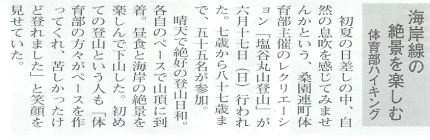 海岸線の
絶景を楽しむ
体育部ハイキング
初夏の日差しの中、自
然の息吹を感じてみませ
んかという、桑園連町体
育部主催のレクリエーシ
ョン「塩谷丸山登山」が
六月十七日（日）行われ
た。七歳から八十七歳ま
で、五十五名が参加。
晴天で絶好の登山日和。
各自のペースで山頂に到
着。昼食と海岸の絶景を
楽しんで下山した。初め
ての登山という人も「体
育部の方々がペースを作
ってくれ、苦しかったけ
ど登れました」と笑顔を
見せていた。